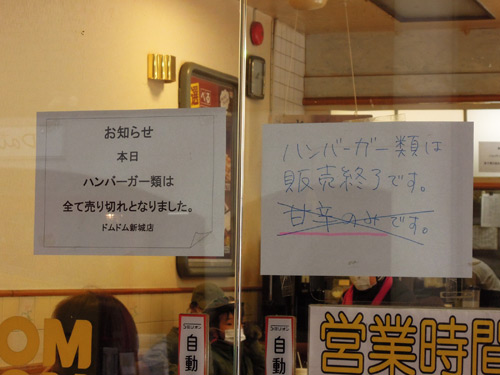 お知らせ
本日
ハンバーガー類は
全て売り切れとなりました。
ドムドム新城店
ハンバーガー類は
販売終了です。
甘辛のみです。
自動
自動
営業時間
OM